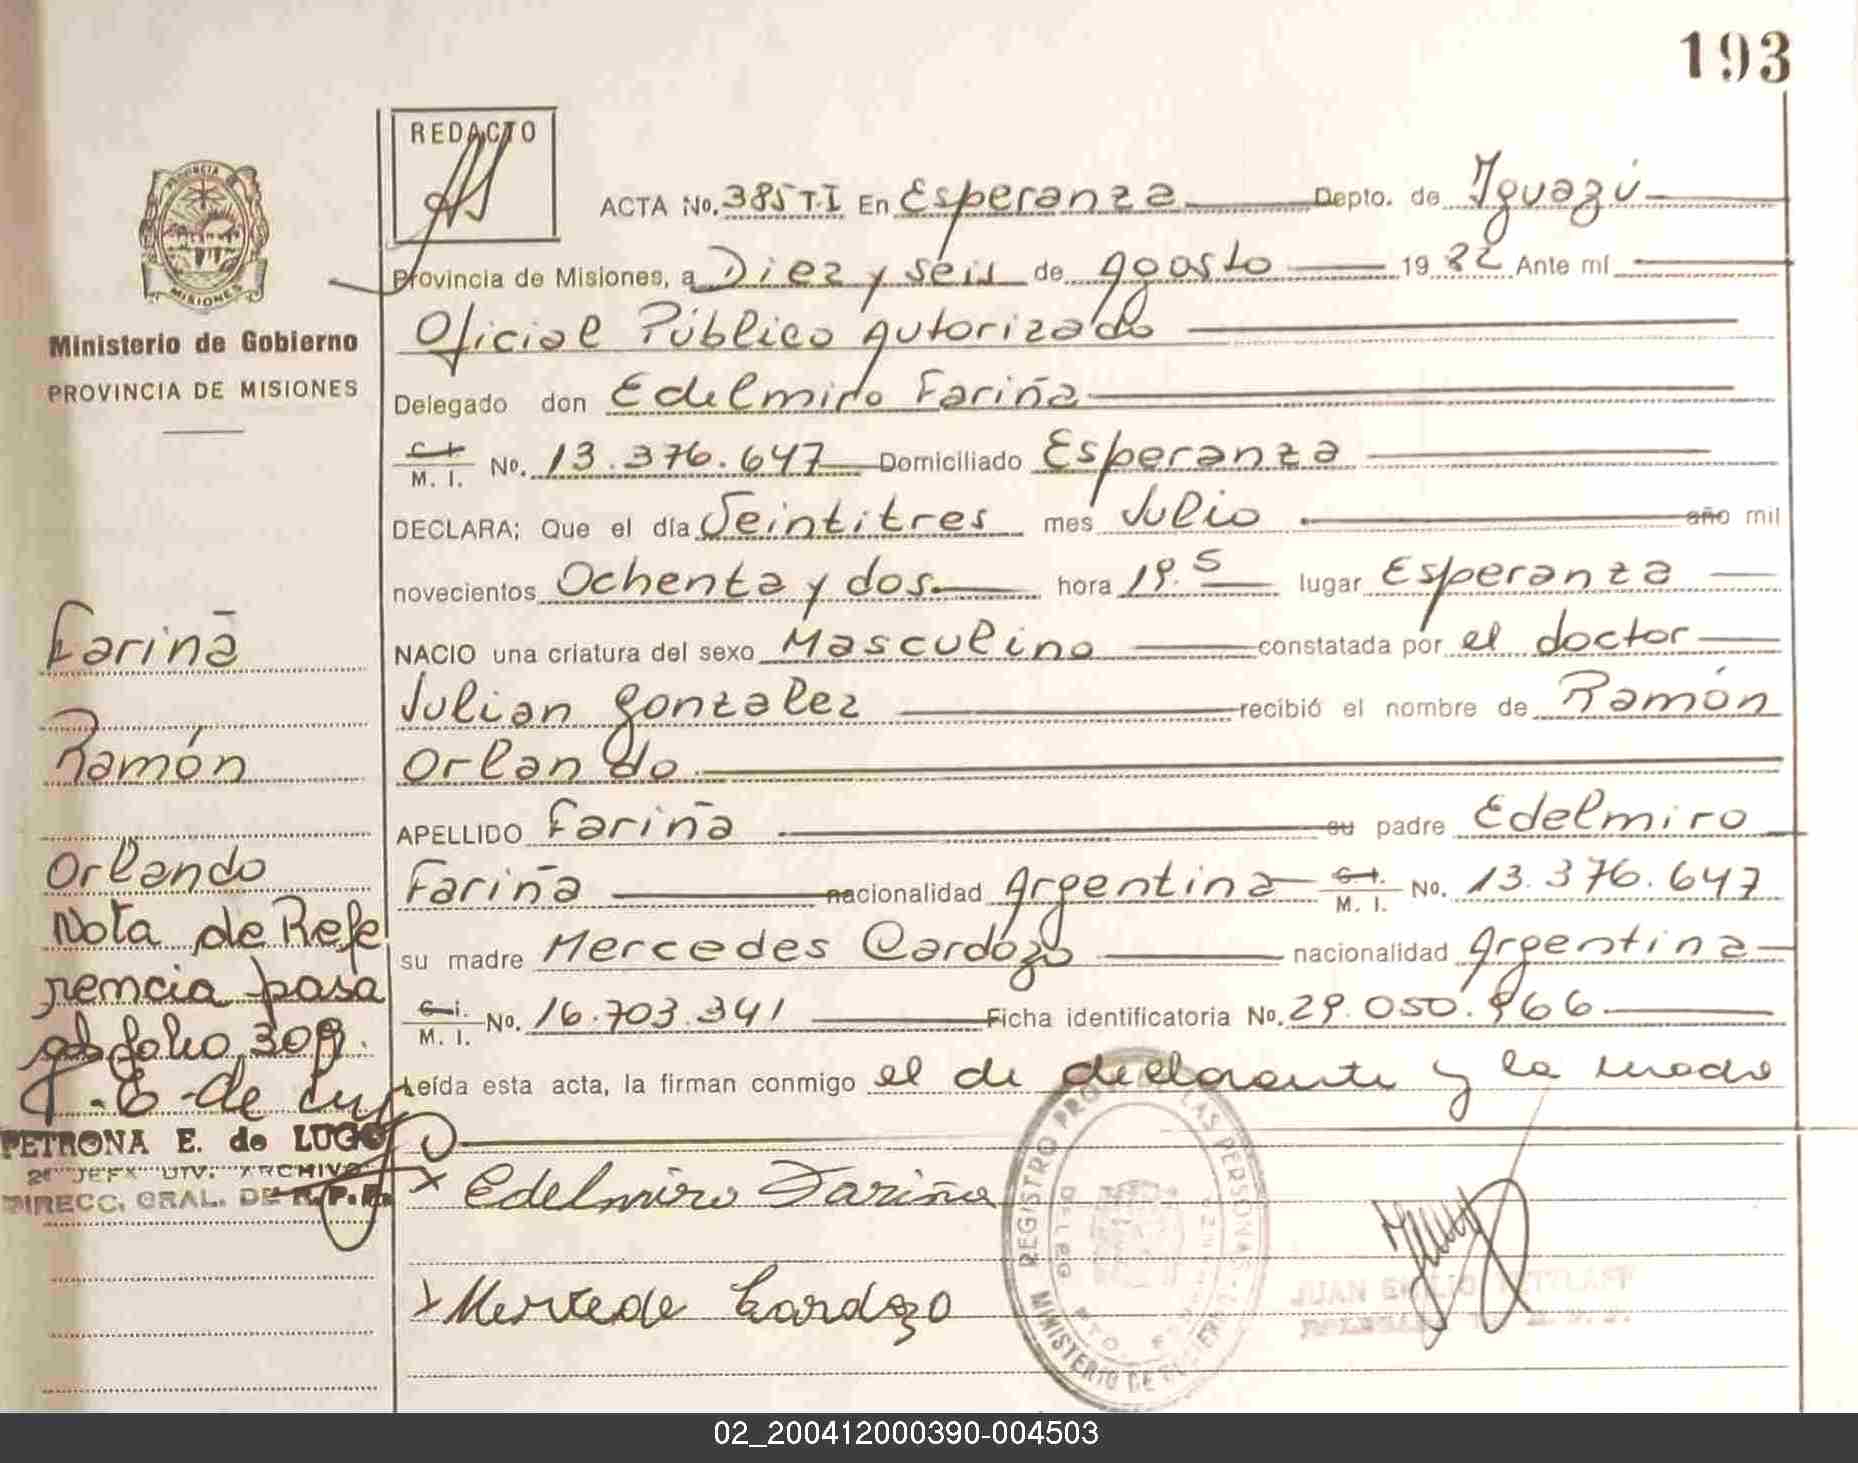 193
REDACTO
ACTA No. 385 T.I En Esperanza Depto. de Iguazú
Provincia de Misiones, a Diez y séis de Agosto 1982 Ante mí
Oficial Público Autorizado
Delegado don Edelmiro Fariña
C.I. M. I. No. 13.376.647 Domiciliado Esperanza
DECLARA; Que el día Veintitres mes Julio año mil
novecientos Ochenta y dos. hora 19.5 lugar Esperanza
NACIO una criatura del sexo Masculino constatada por el doctor
Julian Gonzalez recibió el nombre de Ramón
Orlando
APELLIDO Fariña su padre Edelmiro
Fariña nacionalidad Argentina C.I. M. I. No. 13.376.647
su madre Mercedes Cardozo nacionalidad Argentina
C.I. M. I. No. 16.703.341 Ficha identificatoria No. 29.050.966
Leída esta acta, la firman conmigo el de declarante y la madre
Edelmiro Fariña
Mercede Cardozo
PROVINCIA DE MISIONES
Ministerio de Gobierno
PROVINCIA DE MISIONES
Fariña
Ramón
Orlando
Nota de Refe
rencia pasa
folio 309.
P. E. de Lugo
PETRONA E. de LUGO
2º JEFA DIV. ARCHIVO
DIRECC. GRAL. DE R. P. P.
REGISTRO PROV. DE LAS PERSONAS
MINISTERIO DE GOBIERNO
JUAN EMILIO
02_200412000390-004503